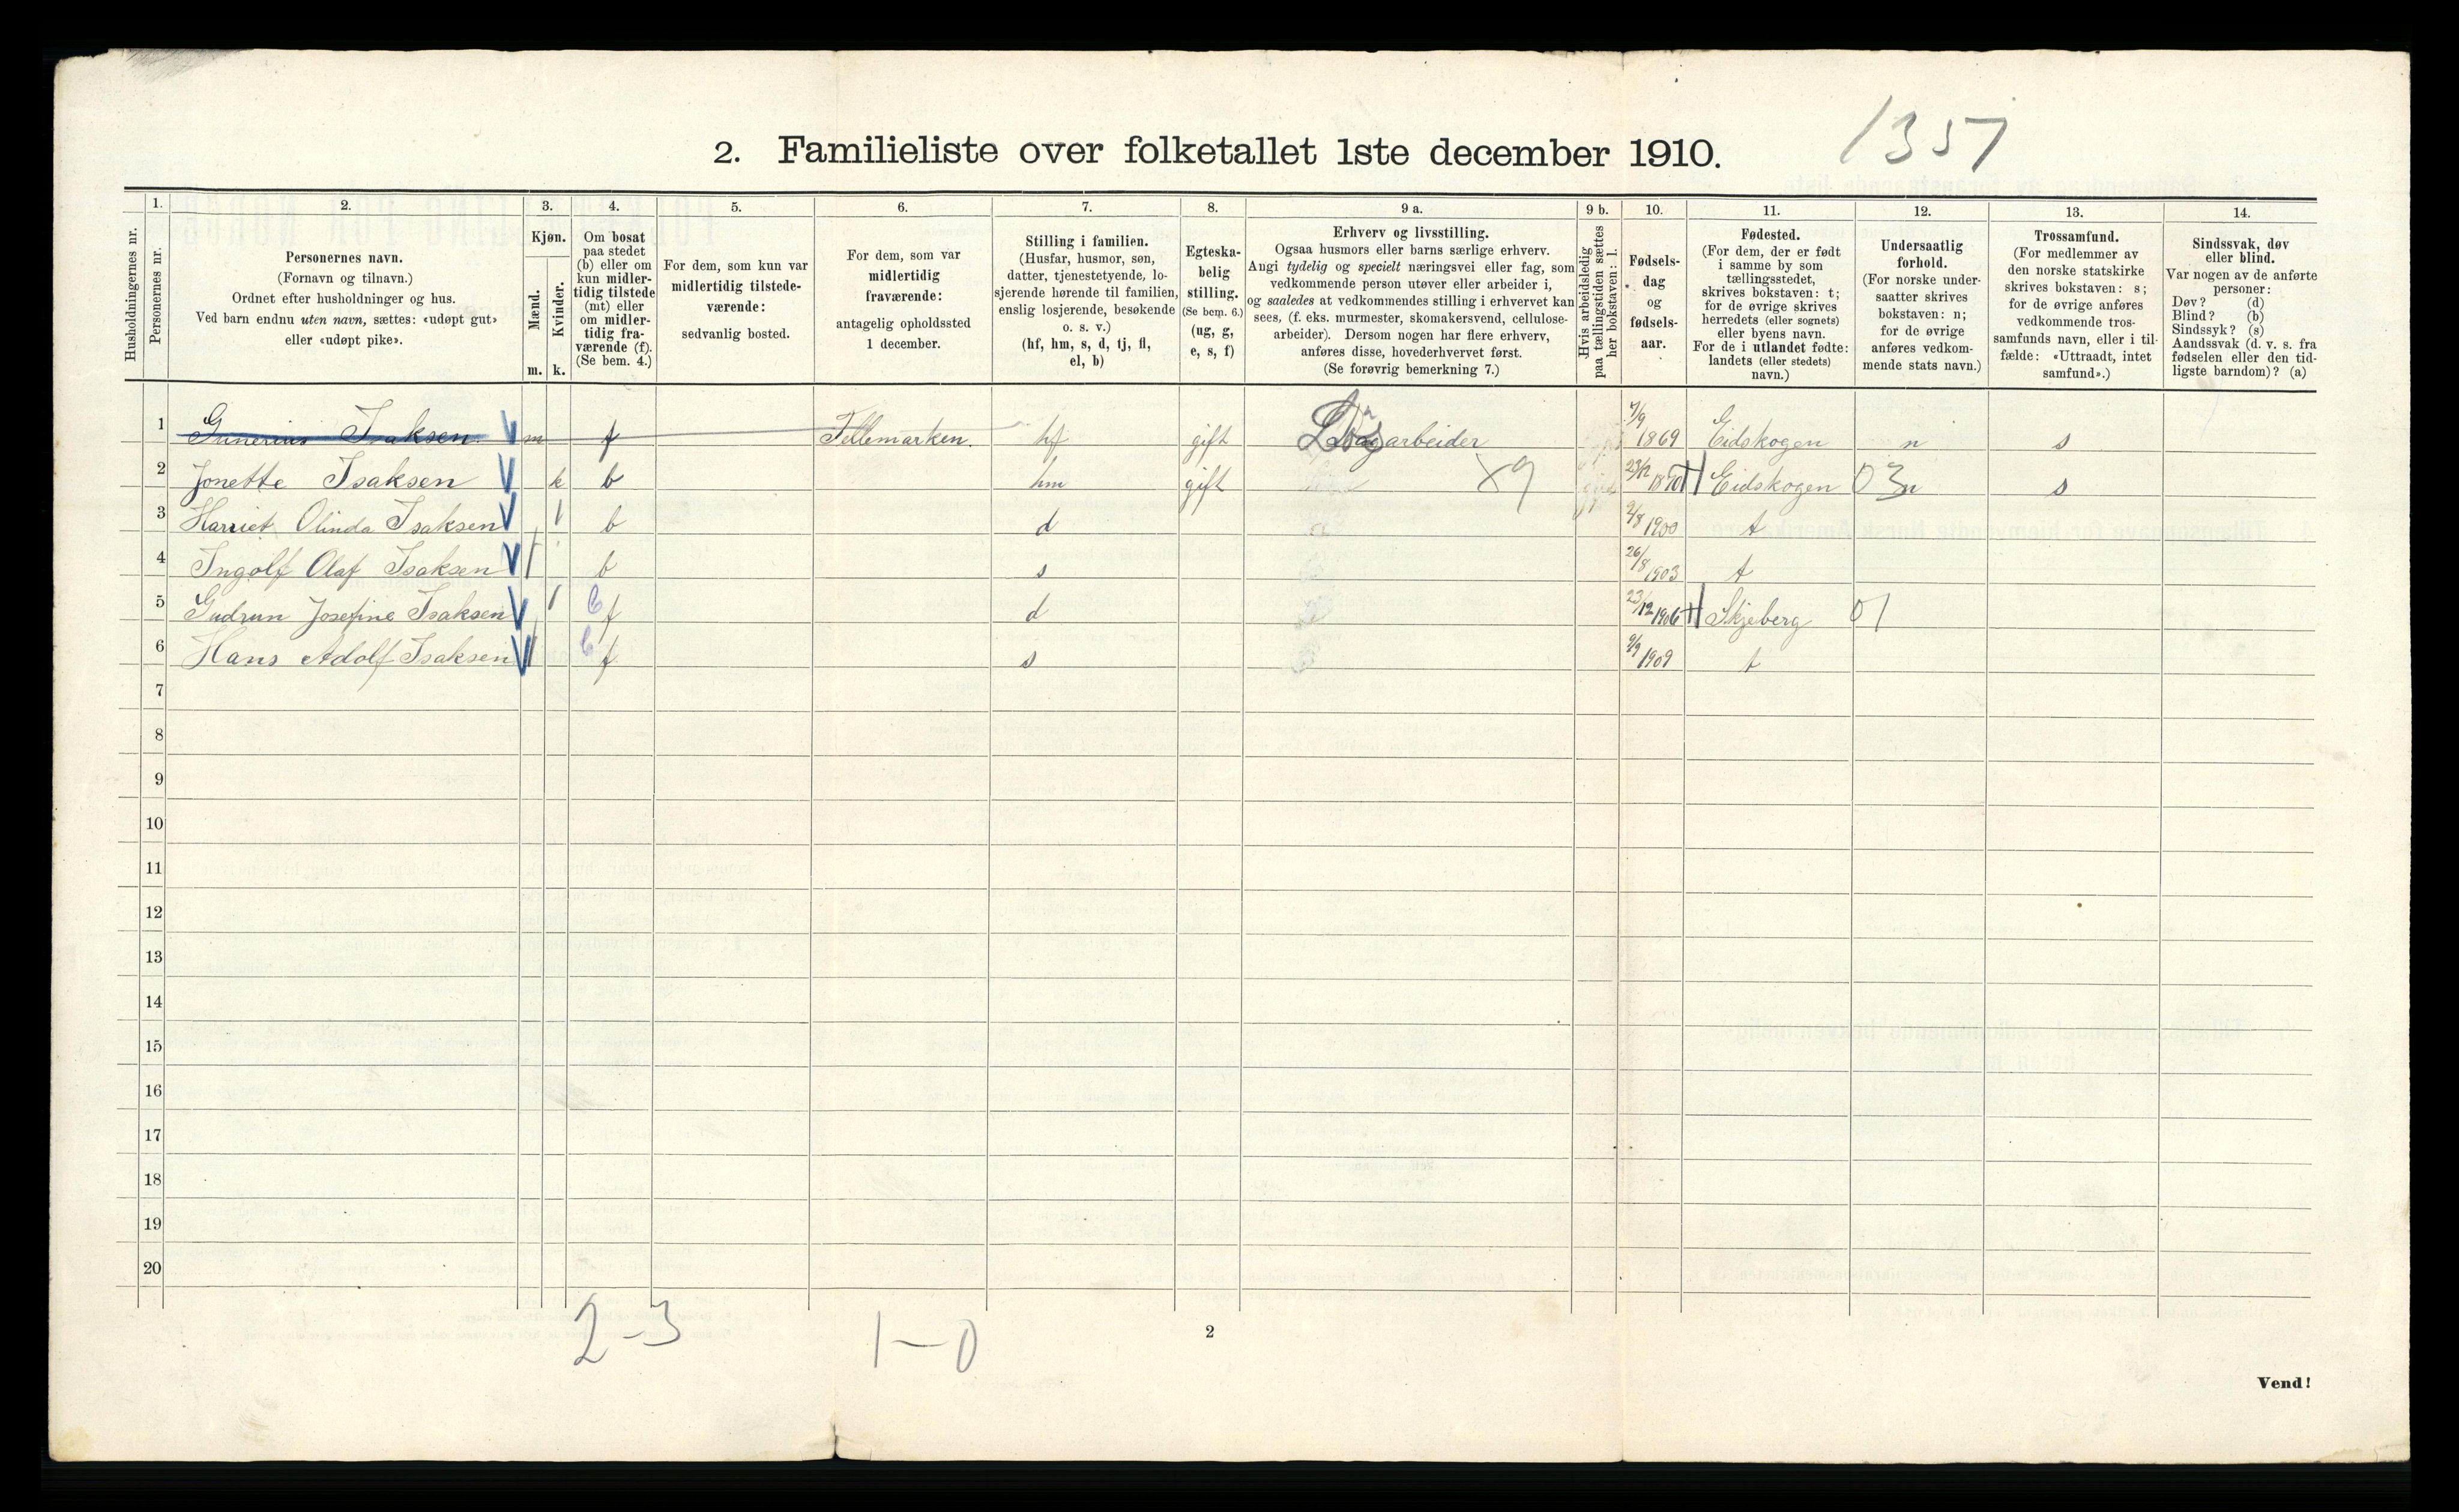 2. Familieliste over folketallet 1ste december 1910.
1357
Husholdningernes nr.
1. Personernes nr.
2. Personernes navn.
(Fornavn og tilnavn.)
Ordnet efter husholdninger og hus.
Ved barn endnu uten navn, sættes: «udøpt gut»
eller «udøpt pike».
3. Kjøn.
Mænd. m.
Kvinder. k.
4. Om bosat
paa stedet
(b) eller om
kun midler-
tidig tilstede
(mt) eller
om midler-
tidig fra-
værende (f).
(Se bem. 4.)
5. For dem, som kun var
midlertidig tilstede-
værende:
sedvanlig bosted.
6. For dem, som var
midlertidig
fraværende:
antagelig opholdssted
1 december.
7. Stilling i familien.
(Husfar, husmor, søn,
datter, tjenestetyende, lo-
sjerende hørende til familien,
enslig losjerende, besøkende
o. s. v.)
(hf, hm, s, d, tj, fl,
el, b)
8. Egteska-
belig
stilling.
(Se bem. 6.)
(ug, g,
e, s, f)
9 a. Erhverv og livsstilling.
Ogsaa husmors eller barns særlige erhverv.
Angi tydelig og specielt næringsvei eller fag, som
vedkommende person utøver eller arbeider i,
og saaledes at vedkommendes stilling i erhvervet kan
sees, (f. eks. murmester, skomakersvend, cellulose-
arbeider). Dersom nogen har flere erhverv,
anføres disse, hovederhvervet først.
(Se forøvrig bemerkning 7.)
9 b. Hvis arbeidsledig
paa tællingstiden sættes
her bokstaven: l.
10. Fødsels-
dag
og
fødsels-
aar.
11. Fødested.
(For dem, der er født
i samme by som
tællingsstedet,
skrives bokstaven: t;
for de øvrige skrives
herredets (eller sognets)
eller byens navn.
For de i utlandet fødte:
landets (eller stedets)
navn.)
12. Undersaatlig
forhold.
(For norske under-
saatter skrives
bokstaven: n;
for de øvrige
anføres vedkom-
mende stats navn.)
13. Trossamfund.
(For medlemmer av
den norske statskirke
skrives bokstaven: s;
for de øvrige anføres
vedkommende tros-
samfunds navn, eller i til-
fælde: «Uttraadt, intet
samfund».)
14. Sindssvak, døv
eller blind.
Var nogen av de anførte
personer:
Døv? (d)
Blind? (b)
Sindssyk? (s)
Aandssvak (d. v. s. fra
fødselen eller den tid-
ligste barndom)? (a)
1 Gunerius Isaksen m f Tellemarken. hf gift arbeider 7/9 1869 Eidskogen n s
2 Jonette Isaksen k b hm gift 89 23/12 1870 Eidskogen 03 n s
3 Harriet Olinda Isaksen b d 2/8 1900 t
4 Ingolf Olaf Isaksen b s 26/8 1903 t
5 Gudrun Josefine Isaksen b f d 23/12 1906 Skjeberg 01
6 Hans Adolf Isaksen b f s 9/9 1909 t
7
8
9
10
11
12
13
14
15
16
17
18
19
20
2-3
1-0
2
Vend!